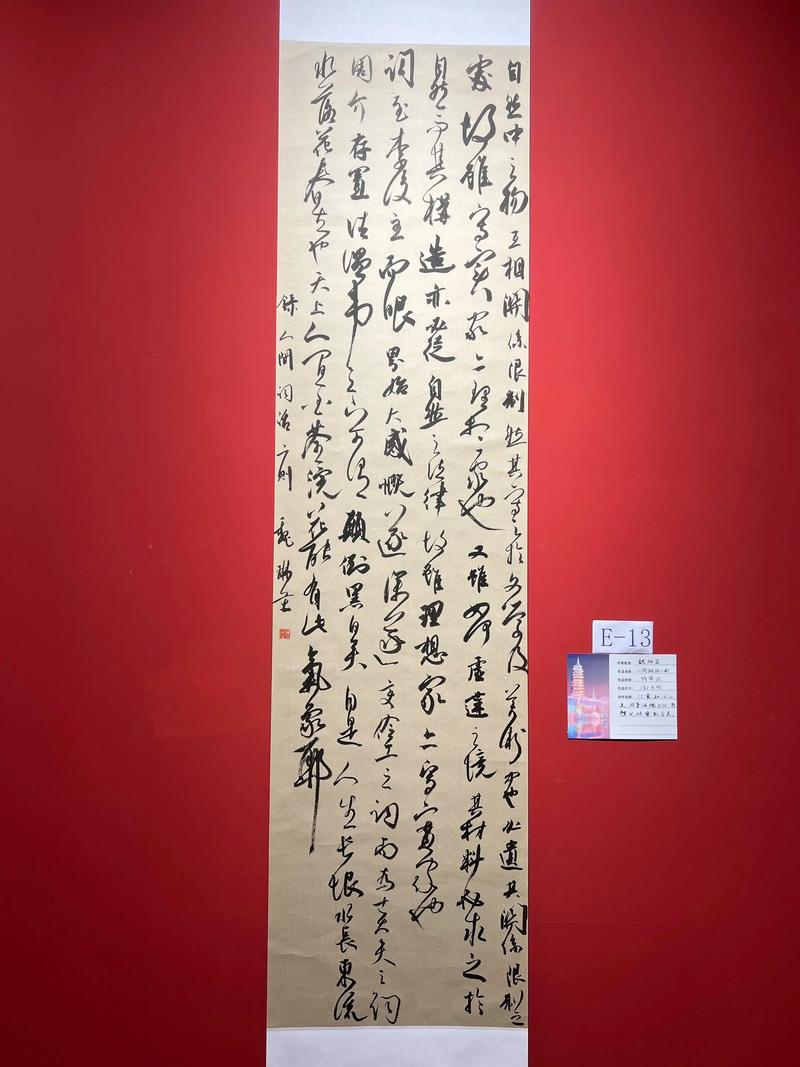 自然中之物互相關係限制然其寫之於文學及美術中也必遺其關係限制之
處故雖寫實家亦理想家也又雖如何虛之境其材料必求之於
自然而其構造亦必從自然之法律故雖理想家亦寫實家也
詞至李後主而眼界始大感慨遂深遂變伶工之詞而為士大夫之詞
周介存置諸溫韋之下可謂顛倒黑白矣自是人生長恨水長東流
水落花春去也天上人間金荃浣花能有此氣象耶
錄人間詞話二則 魏琳
E-13
作者姓名:
作品名称:
作品尺寸: